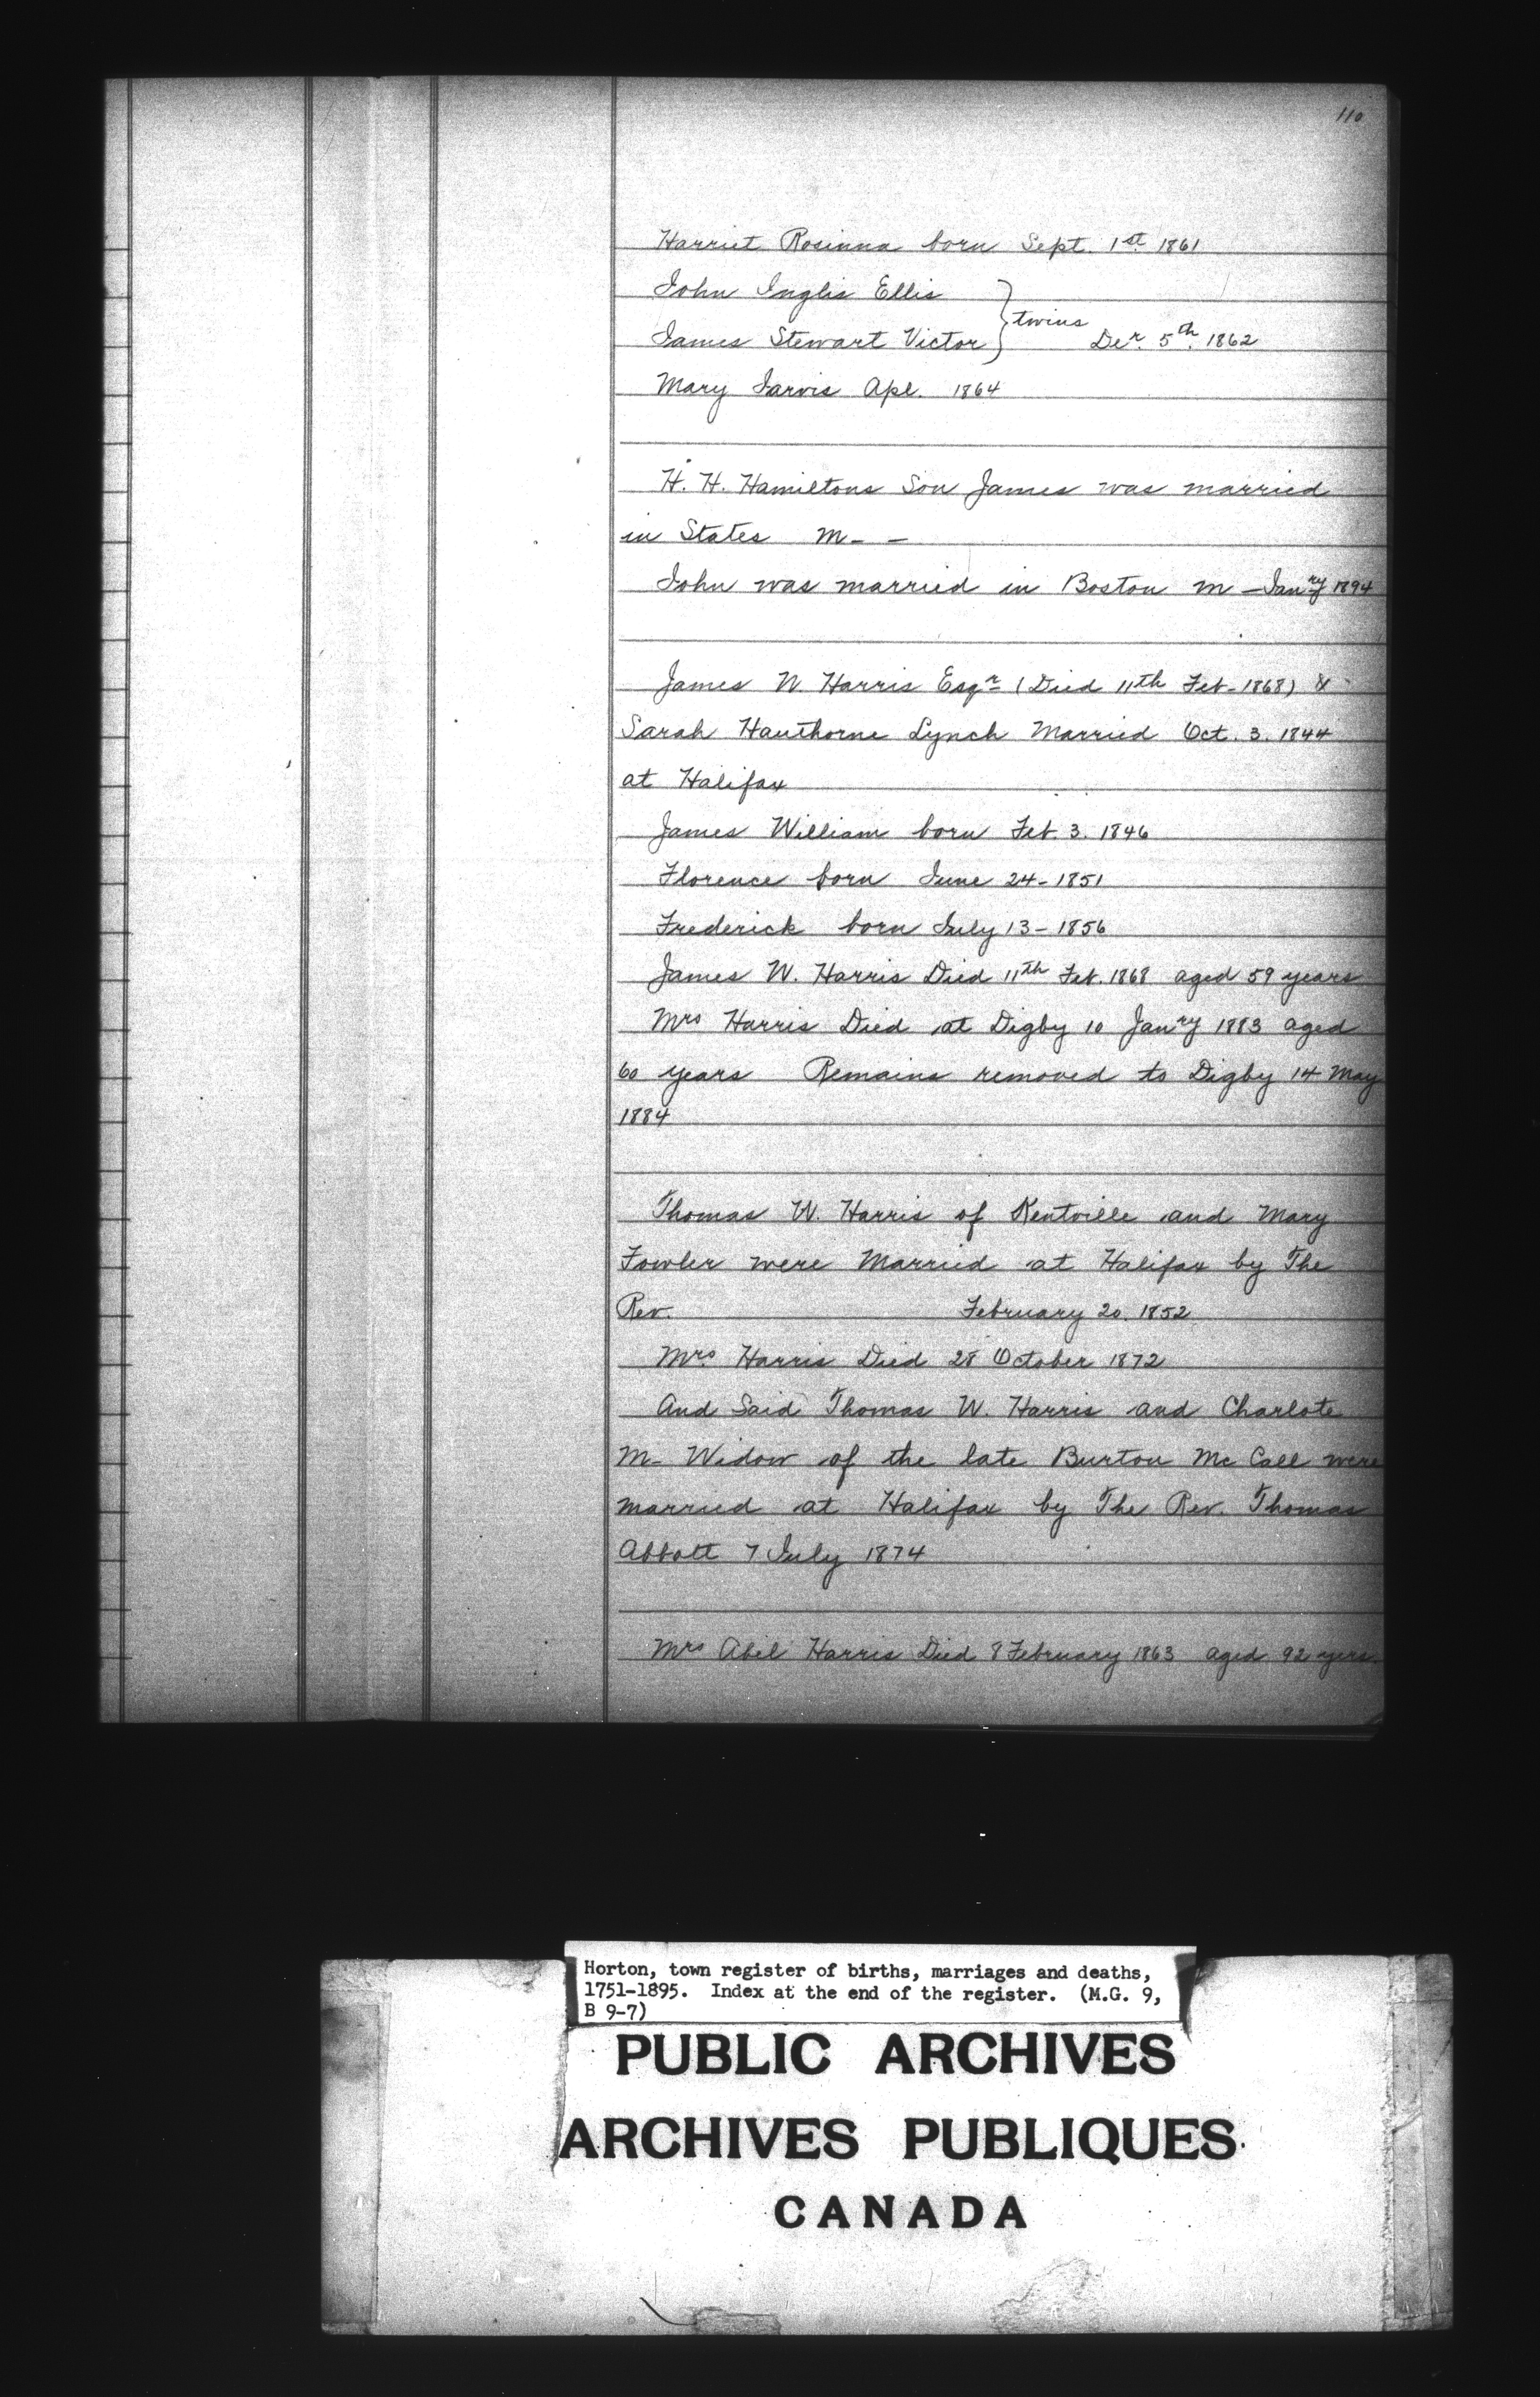 110
Harriet Rosinna born Sept. 1st 1861
John Inglis Ellis
James Stewart Victor } twins Der. 5th. 1862
Mary Jarvis Apl. 1864
H. H. Hamiltons Son James was married
in States M- -
John was married in Boston M - Janry 1894
James W. Harris Esqr (Died 11th Feb- 1868) &
Sarah Hauthorne Lynch Married Oct. 3. 1844
at Halifax
James William born Feb. 3. 1846
Florence born June 24- 1851
Frederick born July 13- 1856
James W. Harris Died 11th Feb. 1868 aged 59 years
Mrs Harris Died at Digby 10 Janry 1883 aged
60 years Remains removed to Digby 14 May
1884
Thomas W. Harris of Kentville and Mary
Fowler were Married at Halifax by The
Rev. February 20. 1852
Mrs. Harris Died 28 October 1872
And Said Thomas W. Harris and Charlote
M- Widow of the late Burton Mc Call were
married at Halifax by The Rev. Thomas
Abbott 7 July 1874
Mrs Abel Harris Died 8 February 1863 aged 92 yers.
Horton, town register of births, marriages and deaths,
1751-1895. Index at the end of the register. (M.G. 9,
B 9-7)
PUBLIC ARCHIVES
ARCHIVES PUBLIQUES
CANADA